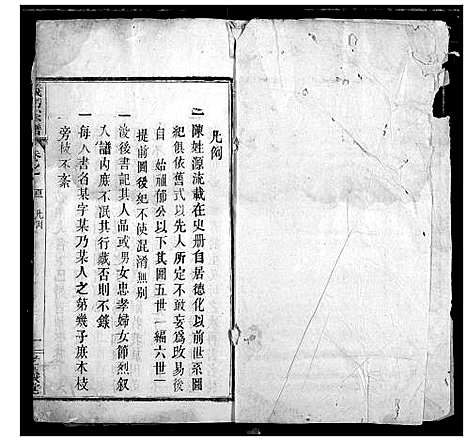 凡例
一陳姓源流載在史册自居德化以前世系圖
紀俱依舊式以先人所定不敢妄爲改易後
自 始祖郁公以下其圖五世一編六世一
提前圖後紀不使混淆無别
一沒後書記其人品或男女忠孝婦女節烈叙
入譜内庶不泯其行藏否則不錄
一每人書名某字某乃某人之第幾子庶木枝
旁披不紊
凡例